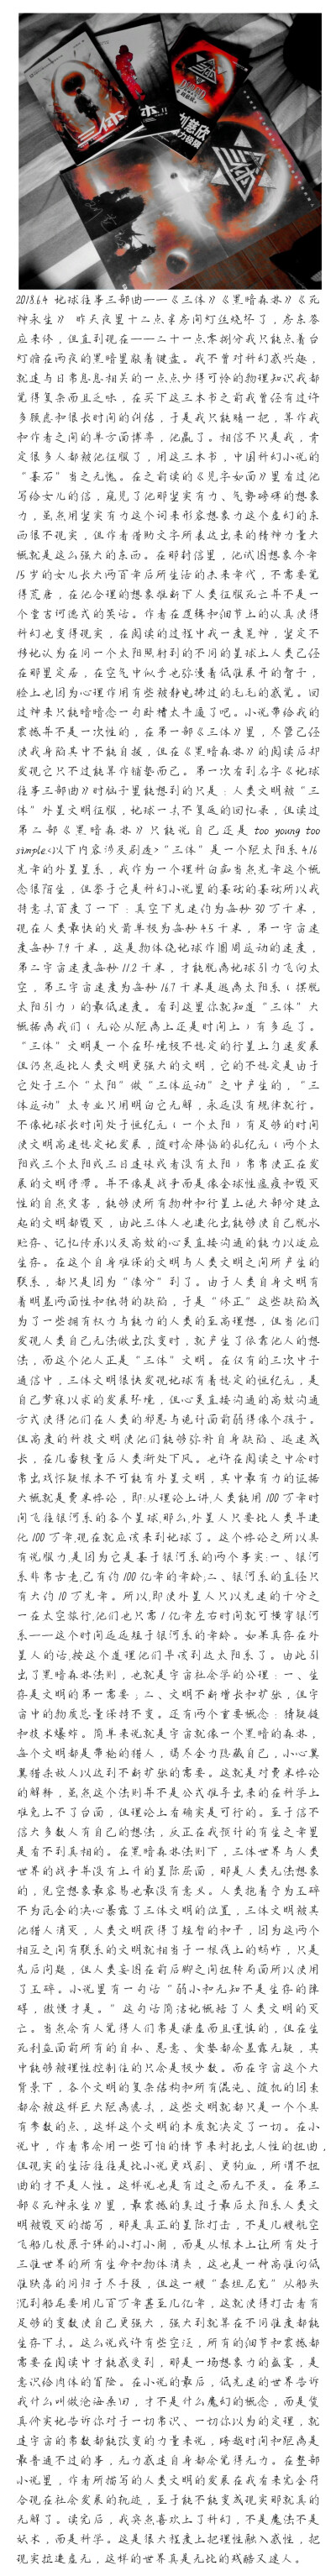 三体
刘慈欣
三体
2018.6.4 地球往事三部曲——《三体》《黑暗森林》《死
神永生》 昨天夜里十二点半房间灯丝烧坏了，房东答
应来修，但直到现在——二十一点半捌分我只能点着台
灯缩在雨夜的黑暗里敲着键盘。我不曾对科幻感兴趣，
就连与日常息息相关的一点点少得可怜的物理知识我都
觉得复杂而且乏味，在买下这三本书之前我曾经有过许
多顾虑和很长时间的纠结，于是我只能赌一把，算作我
和作者之间的单方面博弈，他赢了。相信不只是我，肯
定很多人都被他征服了，用这三本书，中国科幻小说的
“基石”当之无愧。在之前读的《见字如面》里看过他
写给女儿的信，窥见了他那坚实有力、气势磅礴的想象
力，虽然用坚实有力这个词来形容想象力这个虚幻的东
西很不现实，但作者借助文字所表达出来的精神力量大
概就是这么强大的东西。在那封信里，他试图想象今年
15 岁的女儿长大两百年后所生活的未来年代，不需要觉
得荒唐，在他合理的想象推断下人类征服死亡并不是一
个堂吉诃德式的笑话。作者在逻辑和细节上的认真使得
科幻也变得现实，在阅读的过程中我一度晃神，坚定不
移地认为在同一个太阳照射到的不同的星球上人类已经
在那里定居，在空气中似乎也弥漫着低维展开的智子，
脸上也因为心理作用有些被静电拂过的毛毛的感觉。回
过神来只能暗暗念一句卧槽太牛逼了吧。小说带给我的
震撼并不是一次性的，在第一部《三体》里，尽管已经
使我身陷其中不能自拔，但在《黑暗森林》的阅读后却
发现它只不过能算作铺垫而已。第一次看到名字《地球
往事三部曲》时脑子里能想到的只是：人类文明被“三
体”外星文明征服，地球一去不复返的回忆录，但读过
第二部《黑暗森林》只能说自己还是 too young too
simple<以下内容涉及剧透>“三体”是一个距太阳系 4.16
光年的外星星系，我作为一个理科白痴当然光年这个概
念很陌生，但鉴于它是科幻小说里的基础的基础所以我
特意去百度了一下：真空下光速约为每秒 30 万千米，
现在人类最快的火箭单极为每秒 4.5 千米，第一宇宙速
度每秒 7.9 千米，这是物体绕地球作圆周运动的速度，
第二宇宙速度每秒 11.2 千米，才能脱离地球引力飞向太
空，第三宇宙速度为每秒 16.7 千米是逃离太阳系（摆脱
太阳引力）的最低速度。看到这里你就知道“三体”大
概距离我们（无论从距离上还是时间上）有多远了。
“三体”文明是一个在环境极不稳定的行星上匀速发展
但仍然远比人类文明更强大的文明，它的不稳定是由于
它处于三个“太阳”做“三体运动”之中产生的，“三
体运动”太专业只用明白它无解，永远没有规律就行。
不像地球长时间处于恒纪元（一个太阳）有足够的时间
使文明高速稳定地发展，随时会降临的乱纪元（两个太
阳或三个太阳或三日连珠或者没有太阳）常常使正在发
展的文明停滞。并不像是战争而是像全球性瘟疫和毁灭
性的自然灾害，能够使所有物种和行星上绝大部分建立
起的文明都毁灭，由此三体人也进化出能够使自己脱水
贮存、记忆传承以及高效的心灵直接沟通的能力以适应
生存。在这个自身难保的文明与人类文明之间所产生的
联系，都只是因为“缘分”到了。由于人类自身文明有
着明显两面性和独特的缺陷，于是“修正”这些缺陷成
为了一些拥有权力与能力的人类的至高理想，但当他们
发现人类自己无法做出改变时，就产生了依靠他人的想
法，而这个他人正是“三体”文明。在仅有的三次中子
通信中，三体文明很快发现地球有着稳定的恒纪元，是
自己梦寐以求的发展环境，但心灵直接沟通的高效沟通
方式使得他们在人类的邪恶与诡计面前萌得像个孩子。
但高度的科技文明使他们能够弥补自身缺陷、迅速成
长，在几番较量后人类渐处下风。也许在阅读之中会时
常出戏怀疑根本不可能有外星文明，其中最有力的证据
大概就是费米悖论，即:从理论上讲,人类能用 100 万年时
间飞往银河系的各个星球,那么,外星人只要比人类早进
化 100 万年,现在就应该来到地球了。这个悖论之所以具
有说服力,是因为它是基于银河系的两个事实:一、银河
系非常古老,已有约 100 亿年的年龄;二、银河系的直径只
有大约 10 万光年。所以,即使外星人只以光速的千分之
一在太空旅行,他们也只需 1 亿年左右时间就可横穿银河
系——这个时间远远短于银河系的年龄。如果真存在外
星人的话,按这个道理他们早该到达太阳系了。由此引
出了黑暗森林法则，也就是宇宙社会学的公理：一、生
存是文明的第一需要；二、文明不断增长和扩张，但宇
宙中的物质总量保持不变。还有两个重要概念：猜疑链
和技术爆炸。简单来说就是宇宙就像一个黑暗的森林，
每个文明都是带枪的猎人，竭尽全力隐藏自己，小心翼
翼猎杀敌人以达到不断扩张的需要。这就是对费米悖论
的解释，虽然这个法则并不是公式推导出来的在科学上
难免上不了台面，但理论上看确实是可行的。至于信不
信大多数人有自己的想法，反正在我预计的有生之年里
是看不到真相的。在黑暗森林法则下，三体世界与人类
世界的战争并没有上升的星际层面，那是人类无法想象
的，凭空想象最容易也最没有意义。人类抱着宁为玉碎
不为瓦全的决心暴露了三体文明的位置，三体文明被其
他猎人消灭，人类文明获得了短暂的和平，因为这两个
相互之间有联系的文明就相当于一根线上的蚂蚱，只是
先后问题，但人类妄图在前后脚之间扭转局面所以使用
了玉碎。小说里有一句话“弱小和无知不是生存的障
碍，傲慢才是。”这句话简洁地概括了人类文明的灭
亡。当然会有人觉得人们常是谦虚而且谨慎的，但在生
死利益面前所有的自私、恶意、贪婪都会显露无疑，其
中能够被理性控制住的只会是极少数。而在宇宙这个大
背景下，各个文明的复杂结构和所有混沌、随机的因素
都会被这样巨大距离滤去，这些文明就都只是一个个具
有参数的点，这样这个文明的本质就决定了一切。在小
说中，作者常会用一些可怕的情节来衬托出人性的扭曲，
但现实的生活往往是比小说更戏剧、更狗血，所谓不扭
曲的才不是人性。这样说也是有过之而无不及。在第三
部《死神永生》里，最震撼的莫过于最后太阳系人类文
明被毁灭的描写，那是真正的星际打击，不是几艘航空
飞船几枚原子弹的小打小闹，而是从根本上让所有处于
三维世界的所有生命和物体消失，这也是一种高维向低
维跌落的同归于尽手段，但这一艘“泰坦尼克”从船头
沉到船尾要用几百万年甚至几亿年，这就使得打击者有
足够的变数使自己更强大，强大到就算在不同维度都能
生存下去。这么说或许有些空泛，所有的细节和震撼都
需要在阅读中才能感受到，那是一场想象力的盛宴，是
意识给肉体的冒险。在小说的最后，低光速的世界告诉
我什么叫做沧海桑田，才不是什么魔幻的概念，而是货
真价实地告诉你对于一切常识、一切你以为的定理，就
连宇宙的常数都能改变的力量来说，跨越时间和距离是
最普通不过的事，无力感连自身都会觉得无力。在整部
小说里，作者所描写的人类文明的发展在我看来完全符
合现在社会发展的轨迹，至于能不能变成现实那就真的
无解了。读完后，我突然喜欢上了科幻，不是魔法不是
妖术，而是科学。这是很大程度上把理性融入感性，把
现实拉进虚无，这样的世界真是无比的残酷又迷人。